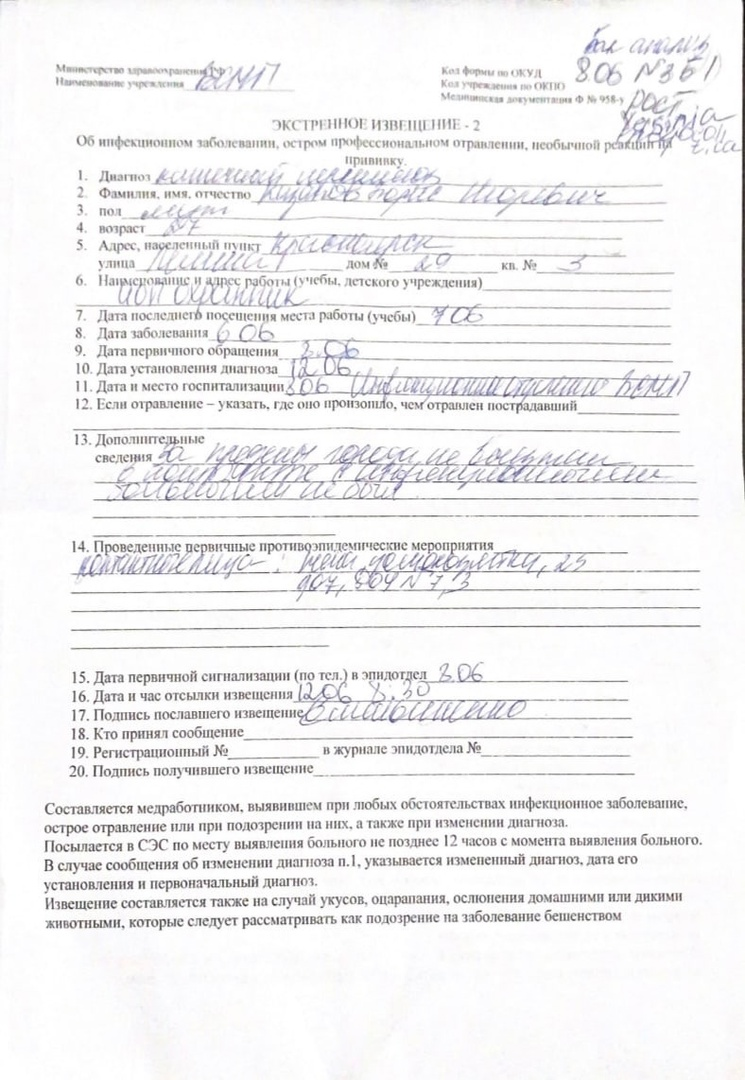 Министерство здравоохранения РФ
Наименование учреждения ВСМП
Код формы по ОКУД
Код учреждения по ОКПО
Медицинская документация Ф № 958-у
Бак анализ
8.06 N 351
рост
ЭКСТРЕННОЕ ИЗВЕЩЕНИЕ - 2
Об инфекционном заболевании, остром профессиональном отравлении, необычной реакции на
прививку.
1. Диагноз кишечный
2. Фамилия, имя, отчество Борис Игоревич
3. пол муж
4. возраст 27
5. Адрес, населенный пункт Красноярск
улица Ленина дом № 29 кв. № 3
6. Наименование и адрес работы (учебы, детского учреждения)
охранник
7. Дата последнего посещения места работы (учебы) 7 06
8. Дата заболевания 6 06
9. Дата первичного обращения 8.06
10. Дата установления диагноза 12 06
11. Дата и место госпитализации 8 06
12. Если отравление – указать, где оно произошло, чем отравлен пострадавший
13. Дополнительные
сведения За пределы города не
в контакте с
не был
14. Проведенные первичные противоэпидемические мероприятия
контактные лица:
15. Дата первичной сигнализации (по тел.) в эпидотдел 8.06
16. Дата и час отсылки извещения 12 06 8.30
17. Подпись пославшего извещение
18. Кто принял сообщение
19. Регистрационный № в журнале эпидотдела №
20. Подпись получившего извещение
Составляется медработником, выявившем при любых обстоятельствах инфекционное заболевание,
острое отравление или при подозрении на них, а также при изменении диагноза.
Посылается в СЭС по месту выявления больного не позднее 12 часов с момента выявления больного.
В случае сообщения об изменении диагноза п.1, указывается измененный диагноз, дата его
установления и первоначальный диагноз.
Извещение составляется также на случай укусов, оцарапания, ослюнения домашними или дикими
животными, которые следует рассматривать как подозрение на заболевание бешенством